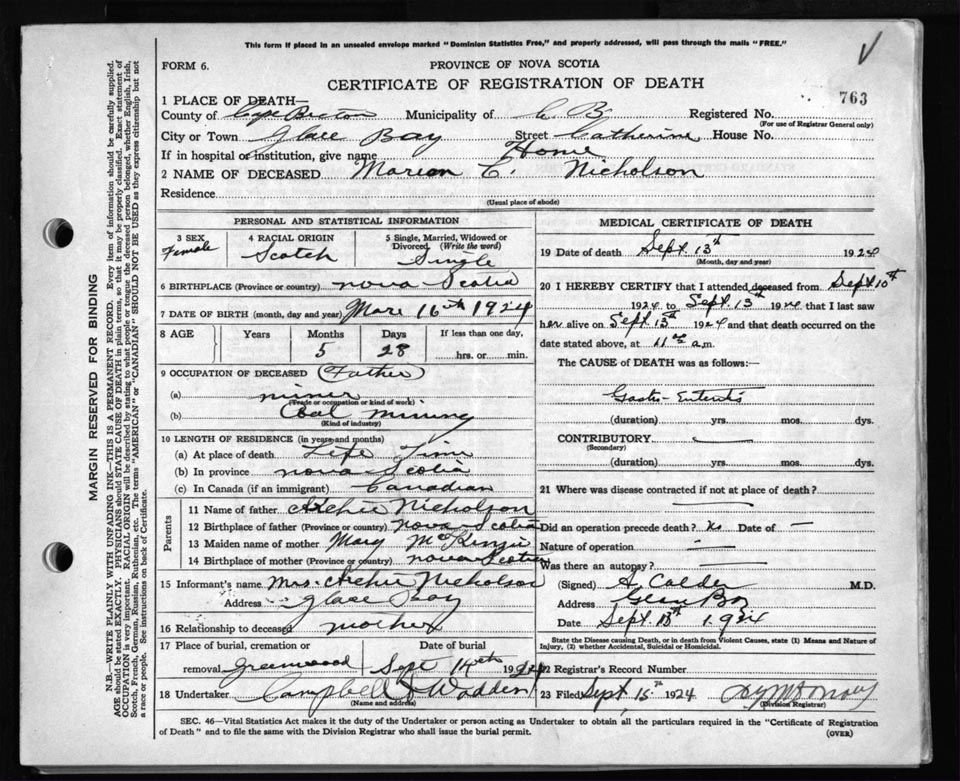 This form if placed in an unsealed envelope marked "Dominion Statistics Free," and properly addressed, will pass through the mails "FREE."
FORM 6.
PROVINCE OF NOVA SCOTIA
CERTIFICATE OF REGISTRATION OF DEATH
763
1 PLACE OF DEATH—
County of Cape Breton Municipality of C.B. Registered No.
(For use of Registrar General only)
City or Town Glace Bay Street Catherine House No.
If in hospital or institution, give name Home
2 NAME OF DECEASED Marion C. Nicholson
Residence
(Usual place of abode)
PERSONAL AND STATISTICAL INFORMATION
3 SEX Female
4 RACIAL ORIGIN Scotch
5 Single, Married, Widowed or Divorced (Write the word) Single
6 BIRTHPLACE (Province or country) Nova Scotia
7 DATE OF BIRTH (month, day and year) Mar 16th 1924
8 AGE Years Months Days If less than one day,
5 28 hrs. or min.
9 OCCUPATION OF DECEASED (Father)
(a) miner
(Trade or occupation or kind of work)
(b) Coal mining
(Kind of industry)
10 LENGTH OF RESIDENCE (in years and months)
(a) At place of death Life Time
(b) In province Nova Scotia
(c) In Canada (if an immigrant) Canadian
Parents
11 Name of father Archie Nicholson
12 Birthplace of father (Province or country) Nova Scotia
13 Maiden name of mother Mary McKenzie
14 Birthplace of mother (Province or country) Nova Scotia
15 Informant's name Mrs. Archie Nicholson
Address Glace Bay
16 Relationship to deceased mother
17 Place of burial, cremation or removal Greenwood
Date of burial Sept 14th 1924
18 Undertaker Campbell & Wadden
(Name and address)
MEDICAL CERTIFICATE OF DEATH
19 Date of death Sept. 13th 1924
(Month, day and year)
20 I HEREBY CERTIFY that I attended deceased from Sept 10th
1924 to Sept. 13th 1924 that I last saw
her alive on Sept 13th 1924 and that death occurred on
date stated above, at 11 a.m.
The CAUSE of DEATH was as follows:—
Gastro-Enteritis
(duration) yrs. mos. dys.
CONTRIBUTORY
(Secondary)
(duration) yrs. mos. dys.
21 Where was disease contracted if not at place of death?
Did an operation precede death? No Date of —
Nature of operation —
Was there an autopsy? —
(Signed) A Calder M.D.
Address Glace Bay
Date Sept. 1924
State the Disease causing Death, or in death from Violent Causes, state (1) Means and Nature of Injury, (2) whether Accidental, Suicidal or Homicidal.
22 Registrar's Record Number
23 Filed Sept 15th 1924
(Division Registrar)
SEC. 46—Vital Statistics Act makes it the duty of the Undertaker or person acting as Undertaker to obtain all the particulars required in the "Certificate of Registration
of Death" and to file the same with the Division Registrar who shall issue the burial permit.
(OVER)
MARGIN RESERVED FOR BINDING
N.B.—WRITE PLAINLY WITH UNFADING INK—THIS IS A PERMANENT RECORD. Every item of information should be carefully supplied.
AGE should be stated EXACTLY. PHYSICIANS should STATE CAUSE OF DEATH in plain terms, so that it may be properly classified. Exact statement of
OCCUPATION is very important. RACIAL ORIGIN will be described by stating to what people or tongue the deceased person belonged, whether English, Irish,
Scotch, French, German, Russian, Ruthenian, etc. The terms "AMERICAN" or "CANADIAN" SHOULD NOT BE USED as they express citizenship but not
a race or people. See instructions on back of Certificate.